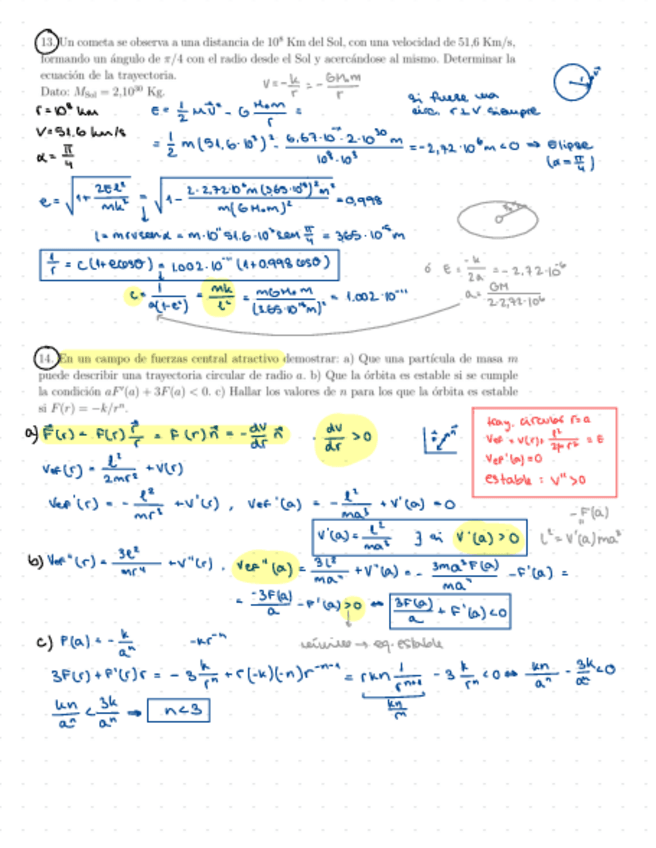 13. Un cometa se observa a una distancia de 10⁸ Km del Sol, con una velocidad de 51,6 Km/s,
formando un ángulo de π/4 con el radio desde el Sol y acercándose al mismo. Determinar la
ecuación de la trayectoria.
Dato: M_Sol = 2,10³⁰ Kg.
V = -k/r = -GM₀m/r
si fuese una
circ. r⊥v siempre
r = 10⁸ km
V = 51.6 km/s
α = π/4
E = 1/2 mv² - G M₀m/r =
= 1/2 m(51,6·10³)² - 6,67·10⁻¹¹·2·10³⁰m/10⁸·10³ = -2,72·10⁶m < 0 ⇒ elipse
(α = π/4)
e = √(1 + 2El²/mk²) = √(1 - 2·2,72·10⁶m(365·10¹³)²m²/m(GM₀m)²) = 0,998
l = mrv sen α = m·10¹¹·51.6·10³ sen π/4 = 365·10¹³m
1/r = c(1+e cosθ) = 1.002·10⁻¹¹(1+0.998 cosθ)
ó E = -k/2a = -2,72·10⁶
a = GM/2·2,72·10⁶
c = 1/a(1-e²) = mk/l² = mGM₀m/(365·10¹³m)² = 1.002·10⁻¹¹
14. En un campo de fuerzas central atractivo demostrar: a) Que una partícula de masa m
puede describir una trayectoria circular de radio a. b) Que la órbita es estable si se cumple
la condición aF'(a) + 3F(a) < 0. c) Hallar los valores de n para los que la órbita es estable
si F(r) = -k/rⁿ.
a) F(r) = F(r) r/r = F(r) n = -dV/dr n . dV/dr > 0
tray. circular r=a
Vef = V(r) + l²/2μr² = E
Vef'(a) = 0
estable : V'' > 0
Vef(r) = l²/2mr² + V(r)
Vef'(r) = -l²/mr³ + V'(r) , Vef'(a) = -l²/ma³ + V'(a) = 0
V'(a) = l²/ma³ ∃ si V'(a) > 0
-F(a)
l² = V'(a)ma³
b) Vef''(r) = 3l²/mr⁴ + V''(r) , Vef''(a) = 3l²/ma⁴ + V''(a) = -3ma³F(a)/ma⁴ - F'(a) =
= -3F(a)/a - F'(a) > 0 ⇔ 3F(a)/a + F'(a) < 0
c) F(a) = -k/aⁿ -kr⁻ⁿ
mínimo → eq. estable
3F(r) + F'(r)r = -3 k/rⁿ + r(-k)(-n)r⁻ⁿ⁻¹ = rkn 1/rⁿ⁺¹ - 3 k/rⁿ < 0 ⇔ kn/aⁿ - 3k/aⁿ < 0
kn/rⁿ
kn/aⁿ < 3k/aⁿ ⇒ n < 3